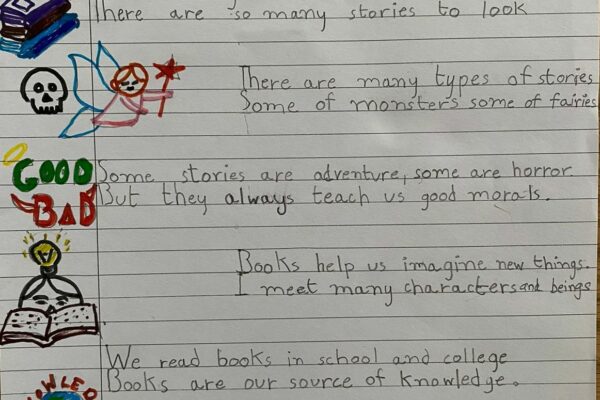 There are so many stories to look
There are many types of stories
Some of monsters some of fairies
GOOD
Some stories are adventure, some are horror.
BAD
But they always teach us good morals.
Books help us imagine new things.
I meet many characters and beings
We read books in school and college
Books are our source of knowledge.